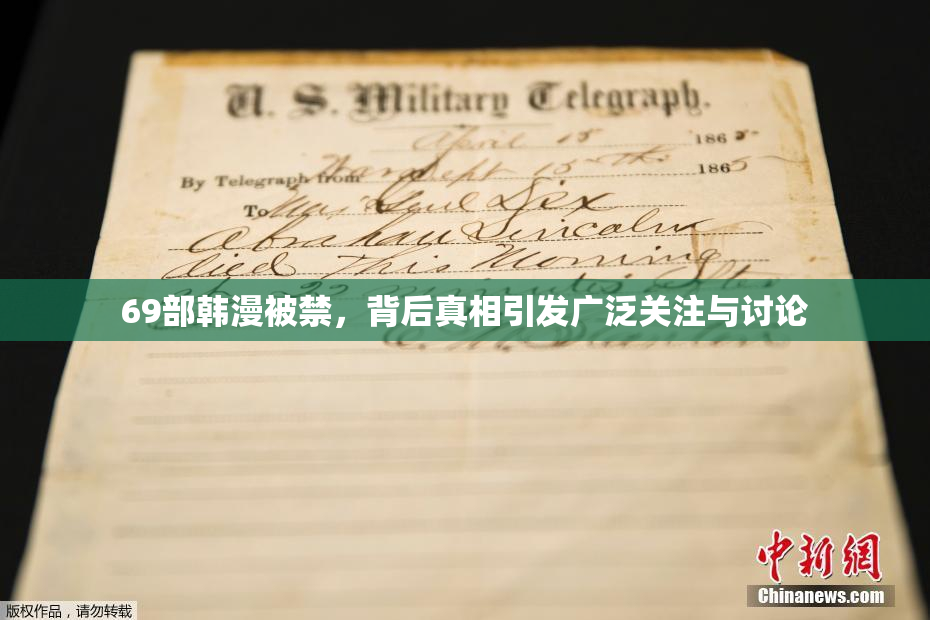 U. S. Military Telegraph.
April 15 1865
By Telegraph from War Dept 15th 1865
To Maj Genl Dix
Abraham Lincoln
died This Morning
22 minutes after
69部韩漫被禁，背后真相引发广泛关注与讨论
E. M. Stanton
中新网
Chinanews.com
版权作品，请勿转载